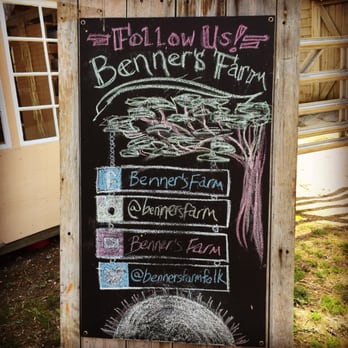 Follow Us!
Benner's Farm
Benner's Farm
@bennersfarm
Benner's Farm
@bennersfarmfolk